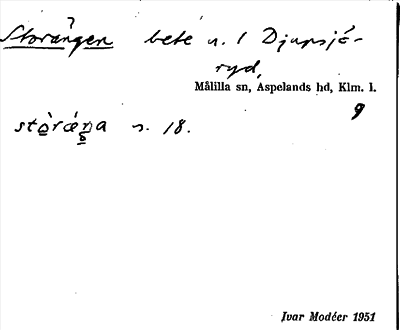 Storängen bete n. 1 Djupsjö-
ryd,
Målilla sn, Aspelands hd, Klm. l.
9
n. 18.
Ivar Modéer 1951